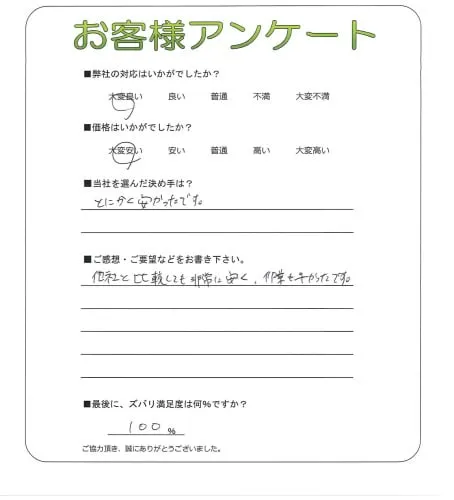 お客様アンケート
■弊社の対応はいかがでしたか？
大変良い 良い 普通 不満 大変不満
■価格はいかがでしたか？
大変安い 安い 普通 高い 大変高い
■当社を選んだ決め手は？
とにかく安かったです。
■ご感想・ご要望などをお書き下さい。
他社と比較しても非常に安く、作業も早かったです。
■最後に、ズバリ満足度は何％ですか？
100 ％
ご協力頂き、誠にありがとうございました。